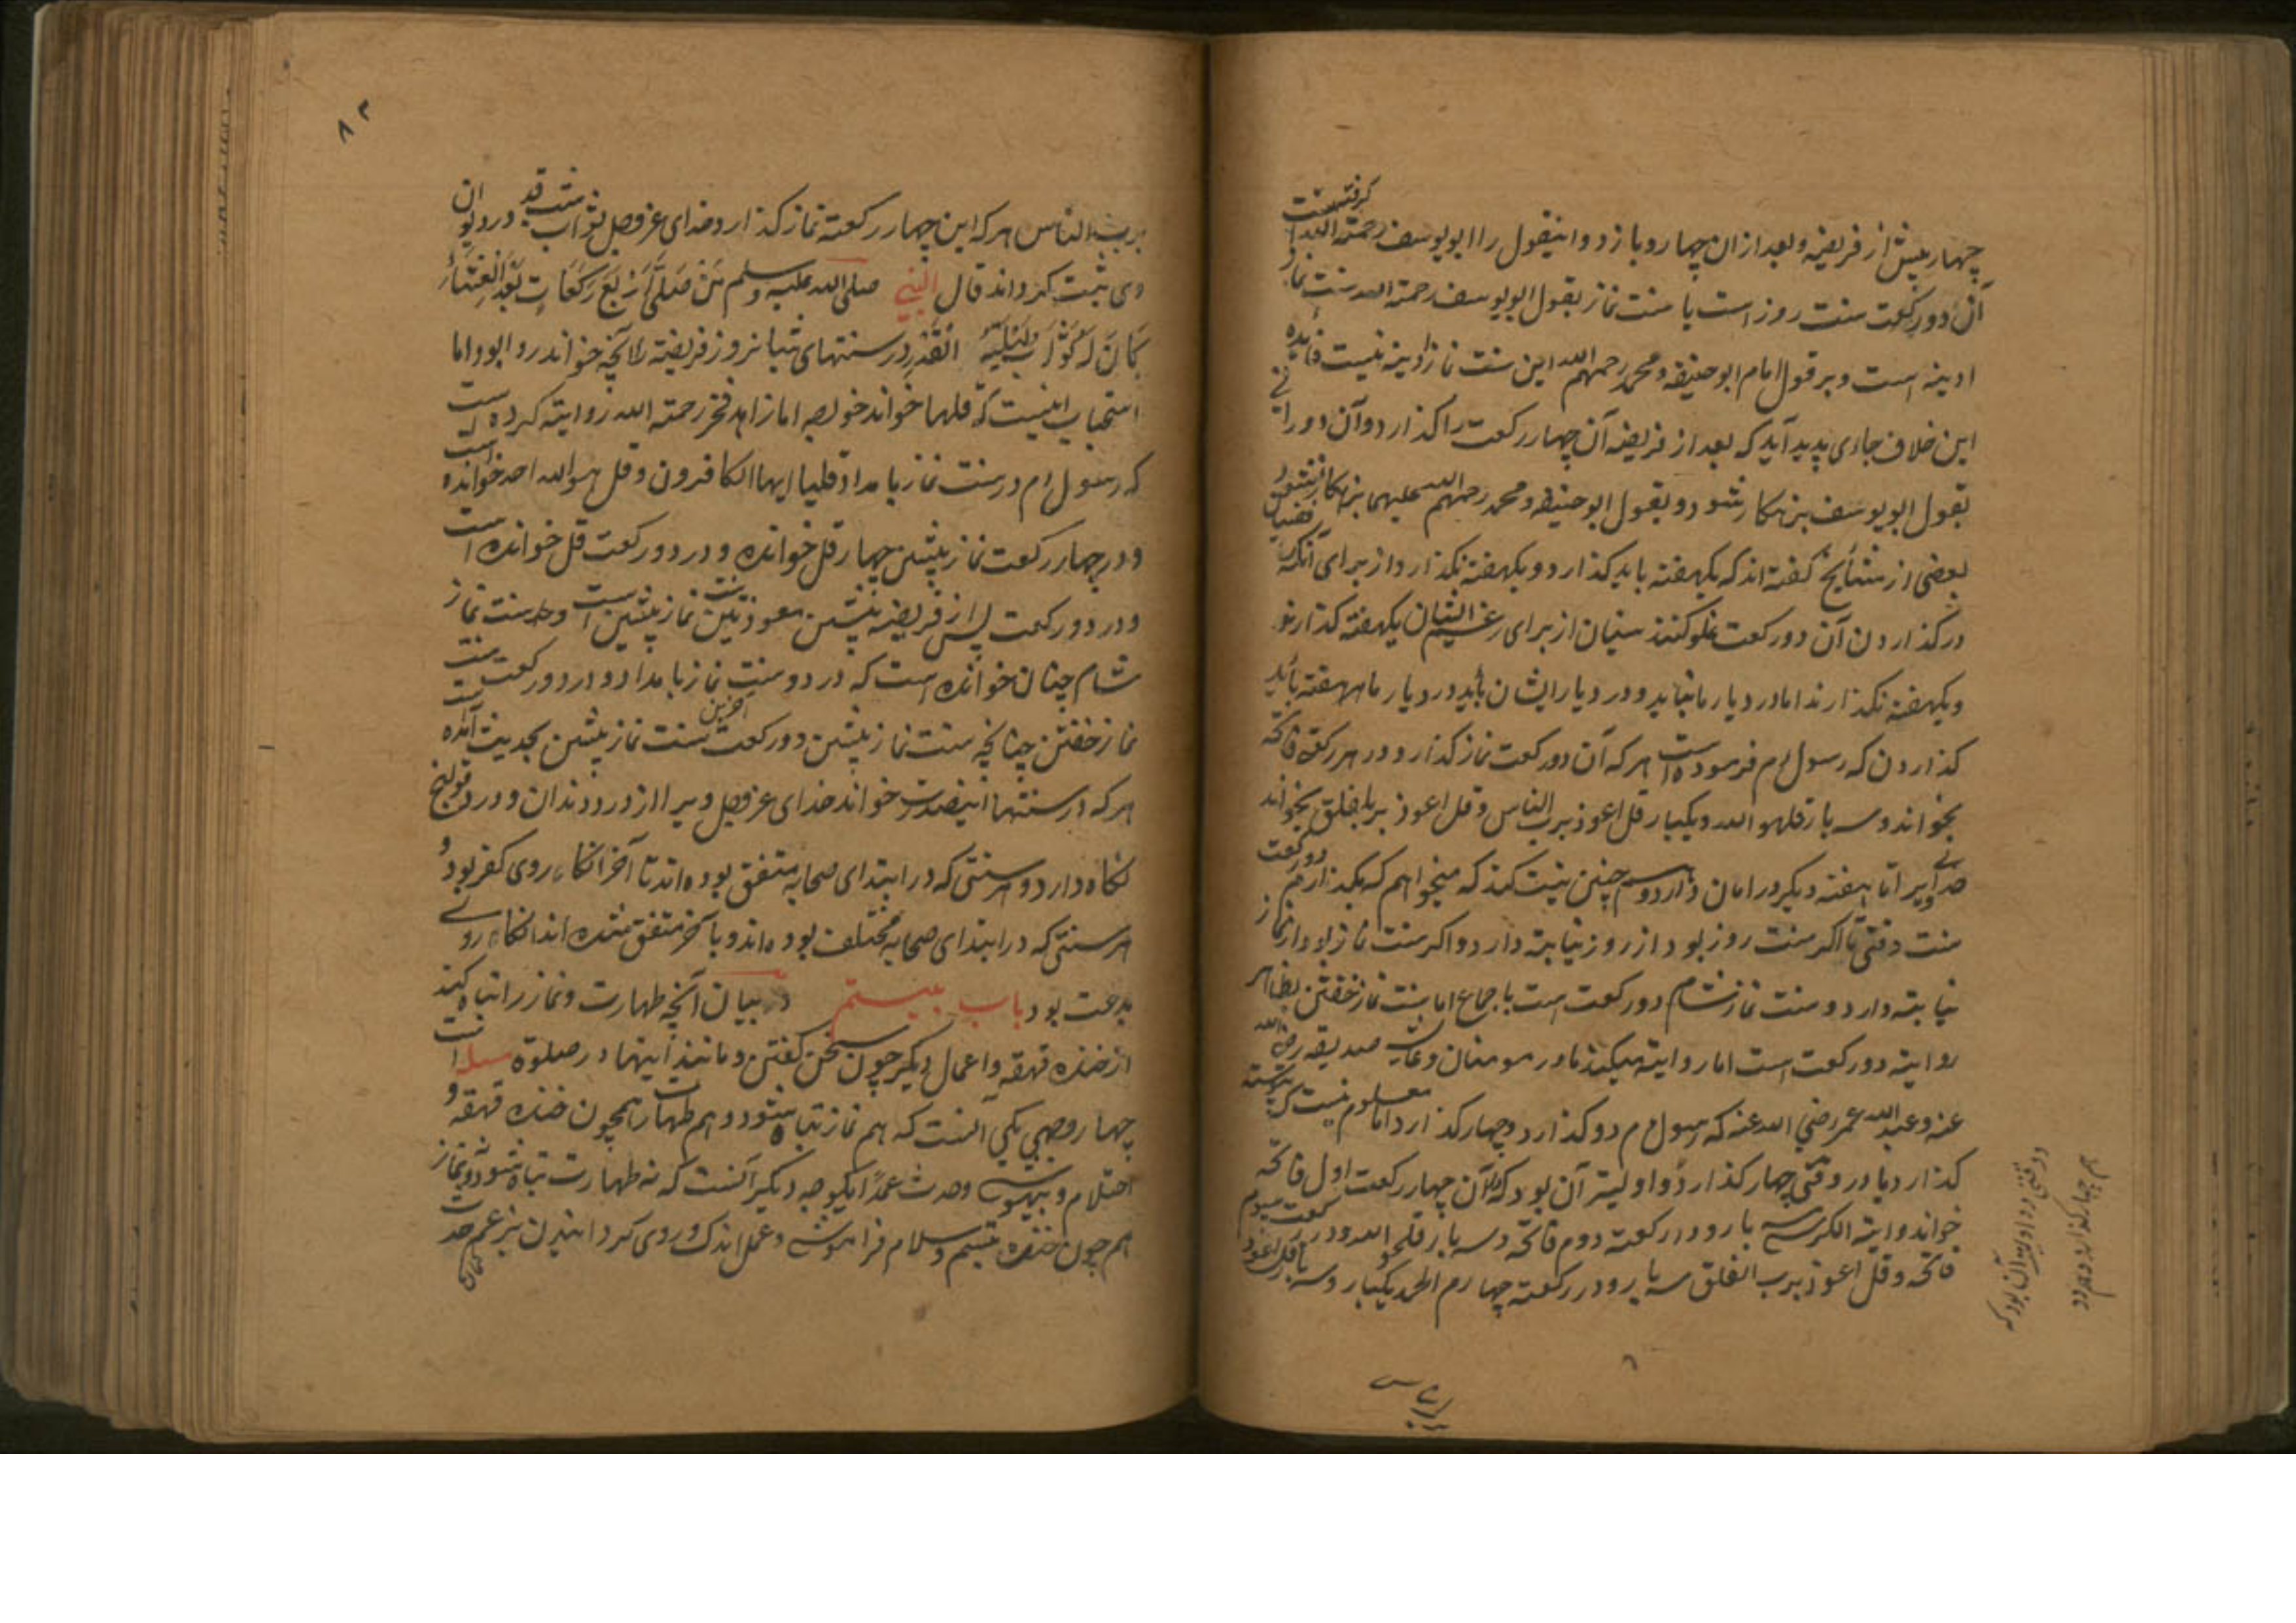 چهار پیش از فریضه و بعد از ان چهار و باز دو و اینقول را ابو یوسف رحمته الله گرفته است
آن دو رکعت سنت روز است یا سنت نماز بقول ابو یوسف رحمته الله سنت نماز
ادینه است و بر قول امام ابو حنیفه و محمد رحمهم الله این سنت نماز ادینه نیست فایده
این خلاف جای پدید آید که بعد از فریضه آن چهار رکعت را گذارد و آن دو را نی
بقول ابو یوسف بزهکار شود و بقول ابو حنیفه و محمد رحمهم الله علیهما بزهکار نشود
بعضی از مشایخ گفته اند که یکهفته باید گذارد و یکهفته نگذارد از برای آنکه
در گذاردن آن دو رکعت غلو کنند سنیان از برای رغم ایشان یکهفته گذارند
و یکهفته نگذارند اما در دیار ما نباید و در دیار ایشان باید و در دیار ما هر هفته باید
گذاردن که رسول م فرموده است هر که آن دو رکعت نماز گذارد و در هر رکعته فاتحه
بخواند و سه بار قلهو الله و یکبار قل اعوذ برب الناس و قل اعوذ برب الفلق بخواند
تا هفته دیگر در امان دارد و چنین نیت کند که میخواهم که بگذارم دو رکعت
سنت وقتی تا اگر سنت روز بود از روز نیابته دارد و اگر سنت نماز بود از نماز
نیابته دارد و سنت نماز شام دو رکعت است با جماع اما سنت نماز خفتن بظاهر
روایته دو رکعت است اما روایته میکند مادر مومنان و عایشه صدیقه رضی الله
عنه و عبد الله عمر رضی الله عنه که رسول م دو گذارد و چهار گذارد اما معلوم نیست که
گذارد یا در وقتی چهار گذارد و اولیتر آن بود که آن چهار رکعت اول فاتحه
خواند و ایته الکرسی سه بار و در رکعته دوم فاتحه و سه بار قلهو الله و در رکعت سیوم
فاتحه و قل اعوذ برب الفلق سه بار و در رکعته چهارم الحمد یکبار و سه بار قل اعوذ
در وقتی دو اولیتر آن بود که
چهار گذارد
۸۲
برب الناس هر که این چهار رکعته نماز گذارد خدای عزوجل ثواب شب قدر در دیوان
وی ثبت گرداند قال النبی صلی الله علیه وسلم مَنْ صَلَّی اَرْبَعَ رَکَعَاتٍ بَعْدَ الْعِشَاءِ
کَانَ لَهُ ثَوَابُ لَیْلَةِ الْقَدْرِ در سنتهای شبانروز فریضه را آنچه خواند روا بود و اما
استحباب اینست که قلها خواند خواجه امام زاهد فخر رحمته الله روایته کرده است
که رسول م در سنت نماز بامداد قل یا ایها الکافرون و قل هو الله احد خوانده است
و در چهار رکعت نماز پیشین چهار قل خوانده و در دو رکعت قل خوانده است
و در دو رکعت پس از فریضه پیشین معوذتین نماز پیشین است و در سنت نماز
شام چنان خوانده است که در دو سنت نماز بامداد و در دو رکعت سنت
نماز خفتن چنانچه سنت نماز پیشین دو رکعت آخرین سنت نماز پیشین بحدیث آمده است
هر که در سنتها اینصورت خواند خدای عزوجل ویرا از درد دندان و درد قولنج
نگاه دارد و هر سنتی که در ابتدای صحابه متفق بوده اند تا آخر انکار وی کفر بود و
هر سنتی که در ابتدای صحابه مختلف بوده اند و بآخر متفق شده اند انکار وی
بدعت بود باب بیستم در بیان آنچه طهارت و نماز را تباه کند
از خنده قهقه و اعمال دیگر چون سخن گفتن و مانند اینها در صلوة
چهار وجهی یکی آنست که هم نماز تباه شود و هم طهارت همچون خنده قهقه و
احتلام و بیهوشی و حدث عمدا یکوجه دیگر آنست که نه طهارت تباه شود و نه نماز
هم چون خنده تبسم و سلام فراموشی و عمل اندک و روی گردانیدن